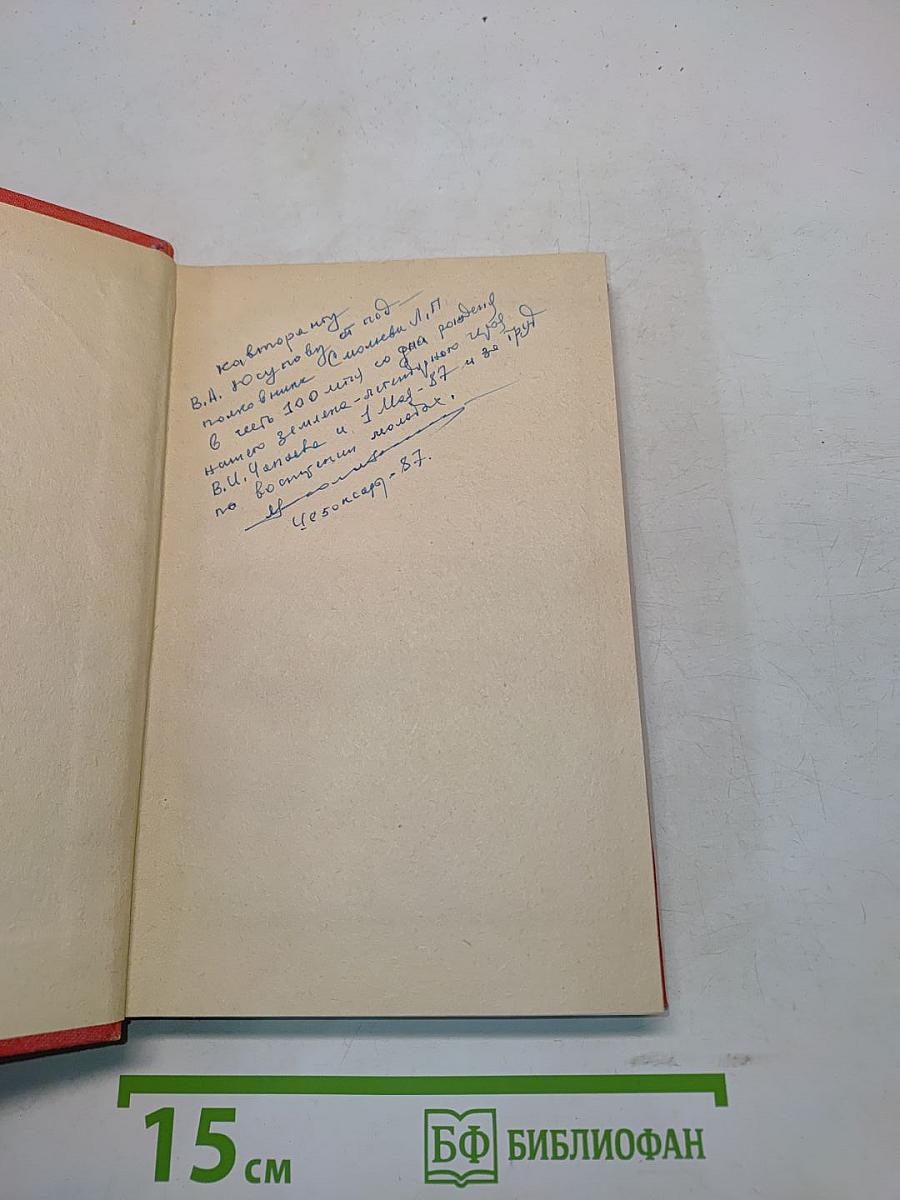 кавторангу
В.А. Юсупову от под
полковника Смолнева Л.П
в честь 100 летия со дна рождения
нашего земляка-легендарного героя
В.И. Чапаева и 1 Мая-87 и за труд
по воспитанию молодёжи.
Чебоксары-87.
15 см
БФ БИБЛИОФАН